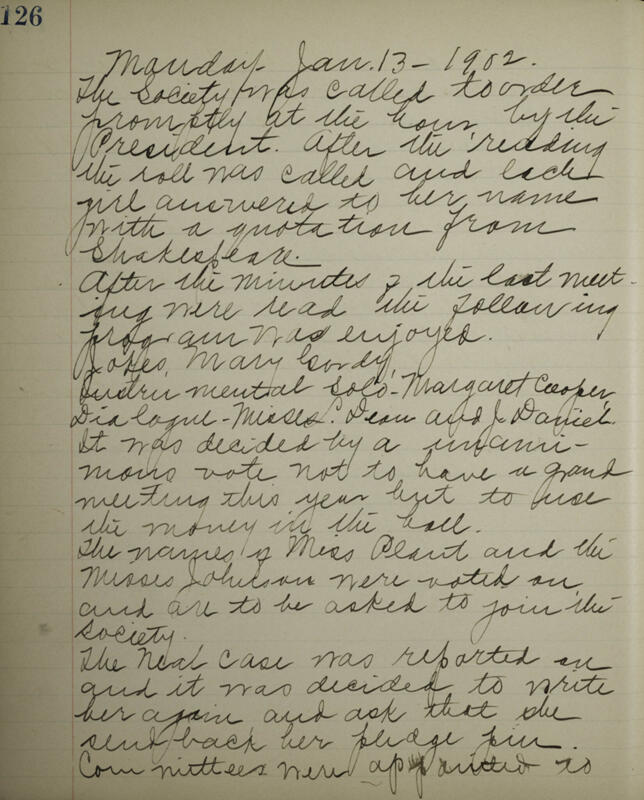 126
Monday Jan. 13 - 1902.
The Society was called to order
promptly at the hour by the
President. After the reading
the roll was called and each
girl answered to her name
with a quotation from
Shakespeare.
After the minutes of the last meet-
ing were read the following
program was enjoyed.
Jokes, Mary Gordy,
Instrumental solo - Margaret Cooper,
Dialogue - Misses C. Dean and J. Daniel.
It was decided by a unani-
mous vote not to have a grand
meeting this year but to use
the money in the hall.
The names of Miss Plant and the
Misses Johnson were voted on
and are to be asked to join the
society.
The Neal case was reported on
and it was decided to write
her again and ask that she
send back her pledge pin.
Committees were appointed to